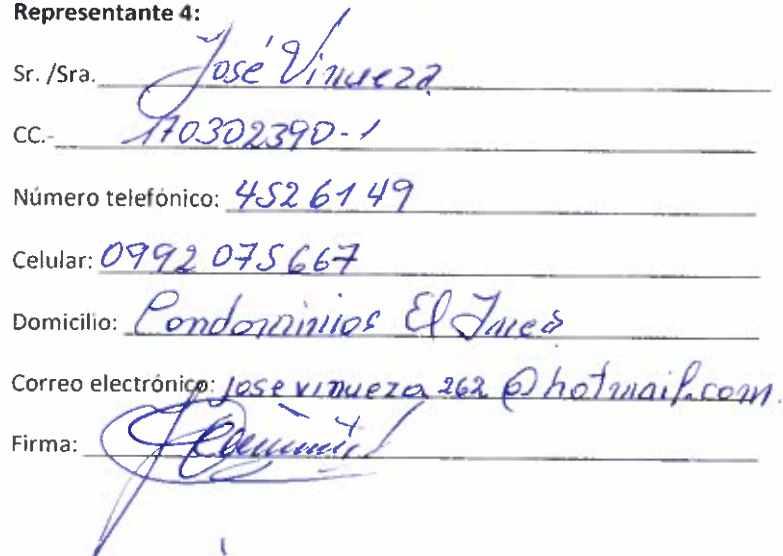 Representante 4:
Sr. /Sra. José Vinueza
CC.- 170302390-1
Número telefónico: 4526149
Celular: 0992075667
Domicilio: Condominios El
Correo electrónico: josevinueza262@hotmail.com.
Firma: